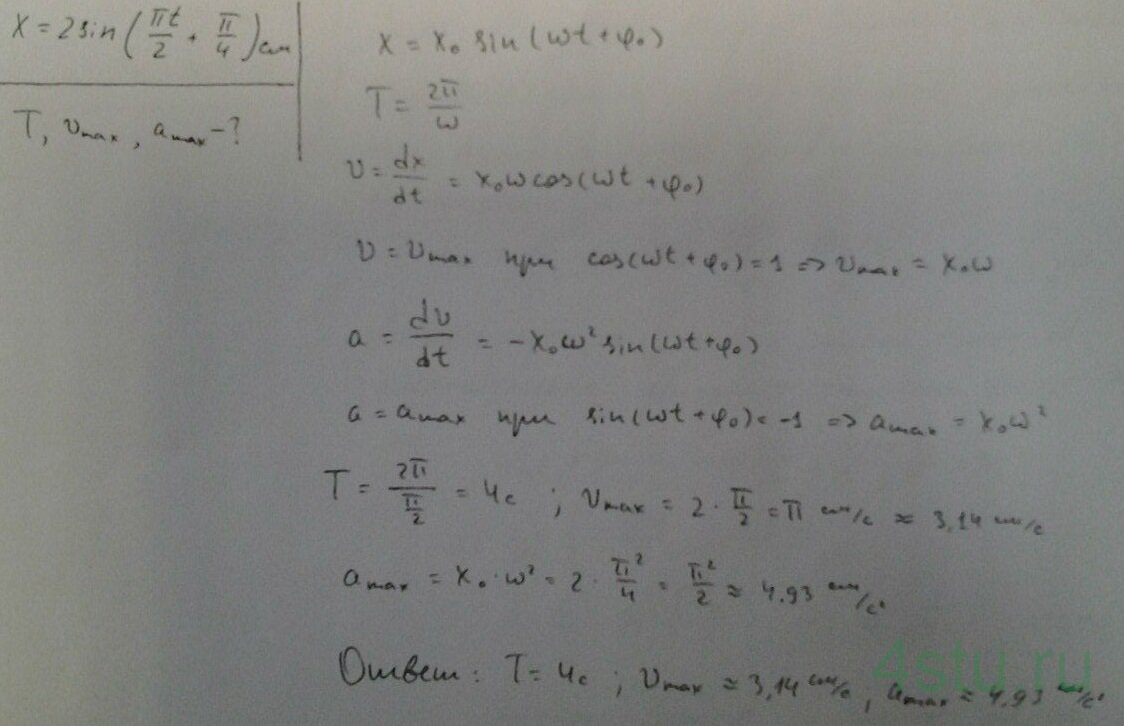 x = 2 sin (πt/2 + π/4) см
T, υmax, amax - ?
x = x₀ sin (ωt + φ₀)
T = 2π/ω
υ = dx/dt = x₀ω cos(ωt + φ₀)
υ = υmax при cos(ωt + φ₀) = 1 => υmax = x₀ω
a = dυ/dt = -x₀ω² sin(ωt + φ₀)
a = amax при sin(ωt + φ₀) = -1 => amax = x₀ω²
T = 2π/(π/2) = 4с ; υmax = 2 · π/2 = π см/с ≈ 3,14 см/с
amax = x₀ · ω² = 2 · π²/4 = π²/2 ≈ 4,93 см/с²
Ответ: T = 4с ; υmax ≈ 3,14 см/с, amax ≈ 4,93 см/с²
4stu.ru